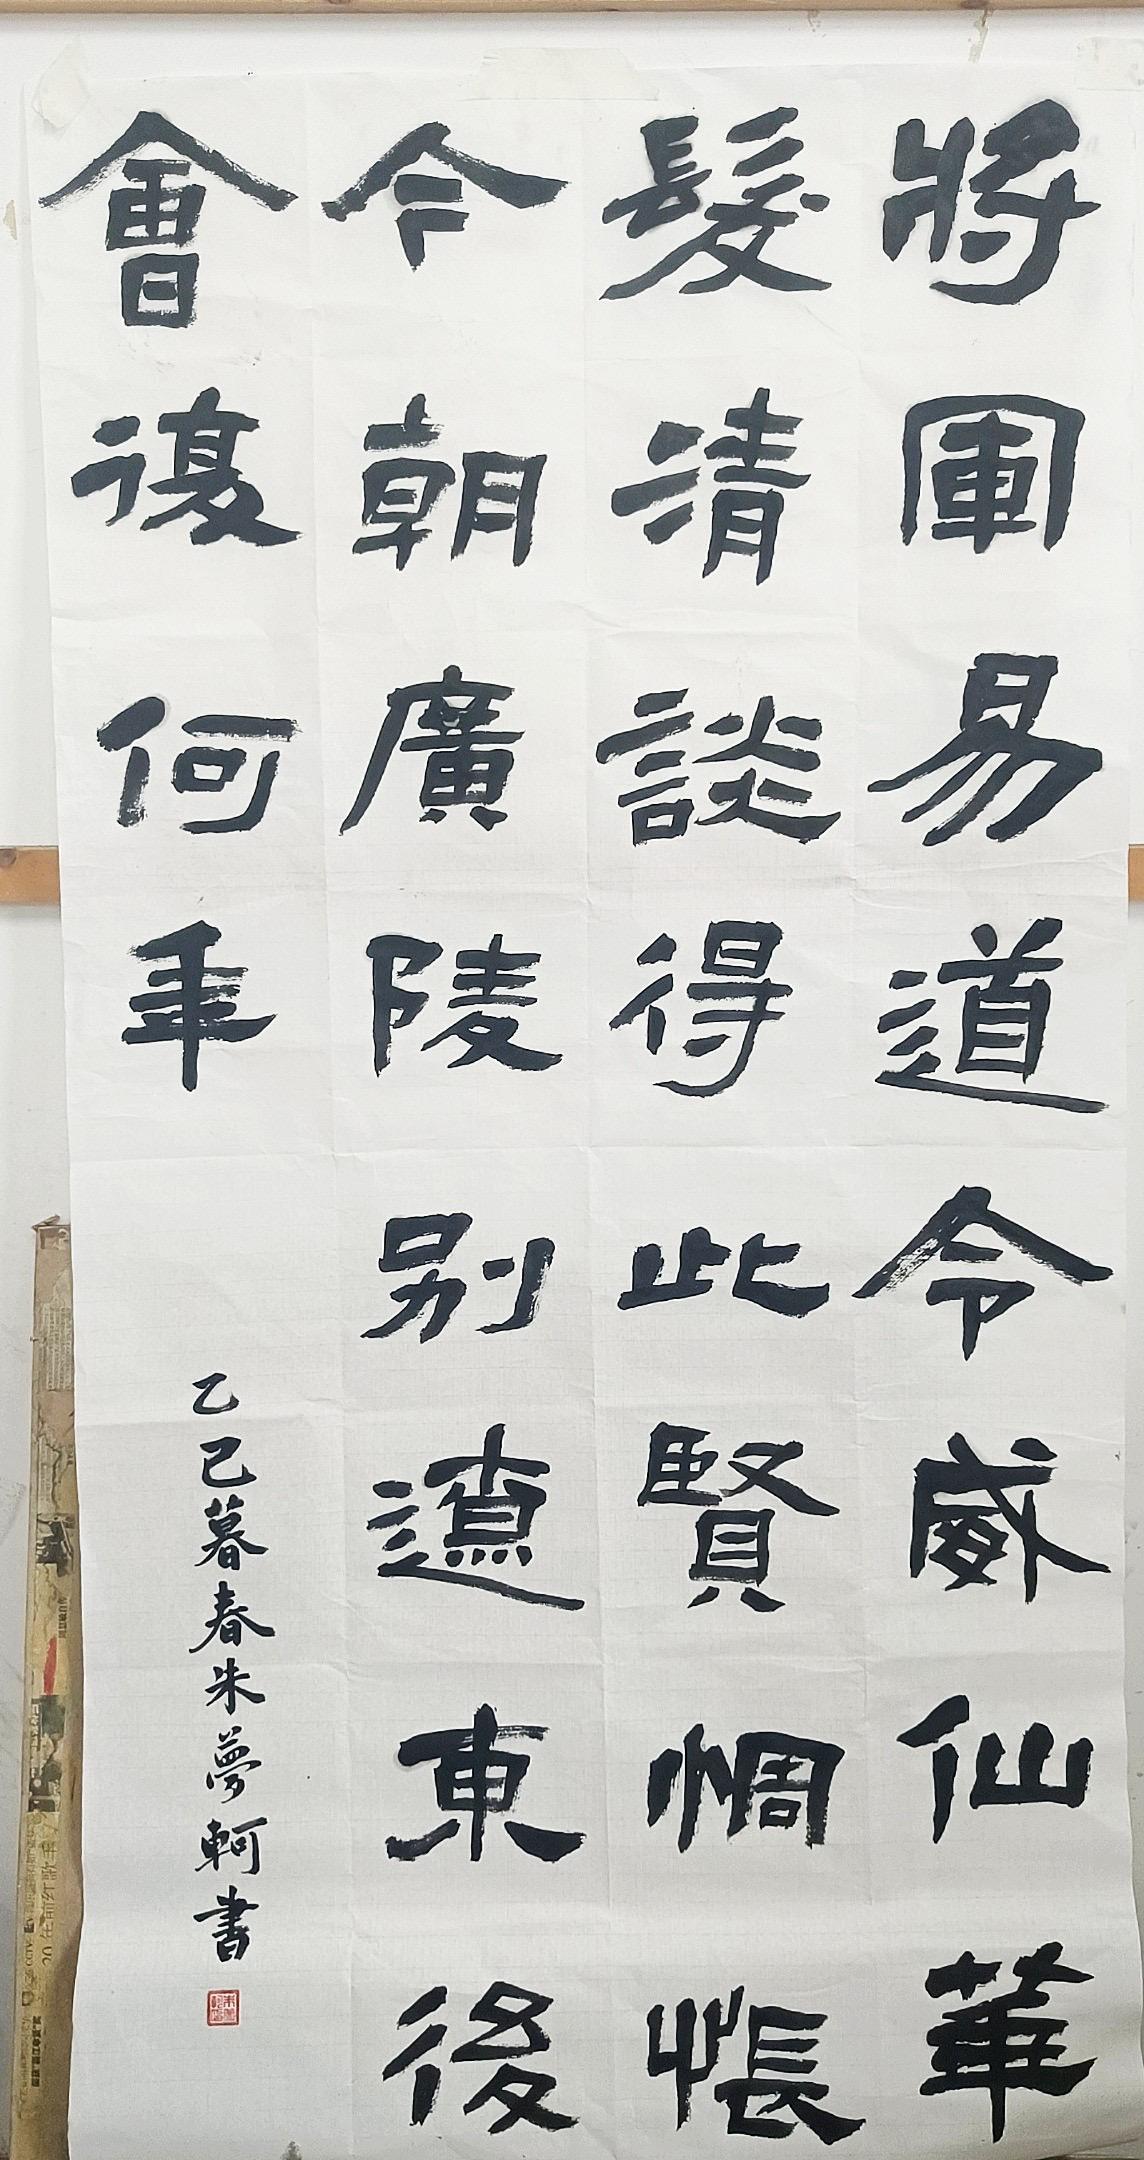 將軍易道令威仙華
髮清談得此賢惆悵
今朝廣陵别遼東後
會復何年
乙巳暮春朱夢軻書